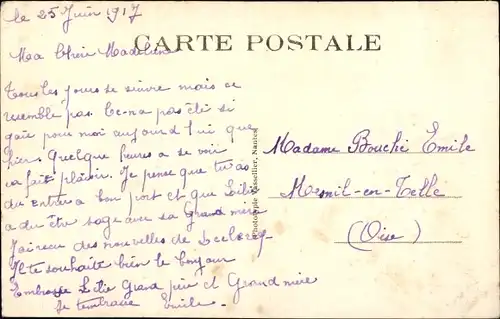 le 25 Juin 1917
CARTE POSTALE
Ma Chère Madeleine
Tous les jours se suivre mais ce
resemble pas. Ce na pas été si
gaie pour moi aujourd'hui que
hier. Quelque heures a se voir
ca fait plaisir. Je pense que tu as
du entrés a bon port et que
a du être sage avec sa Grand mère
J'ai reçu des nouvelles de Leclercq
Il te souhaite bien le bonjour
Embrasse Grand père et Grand mère
Je t'embrasse Emile.
Phototypie Vassellier, Nantes
Madame Bouché Emile
Mesnil-en-Telle
(Oise)